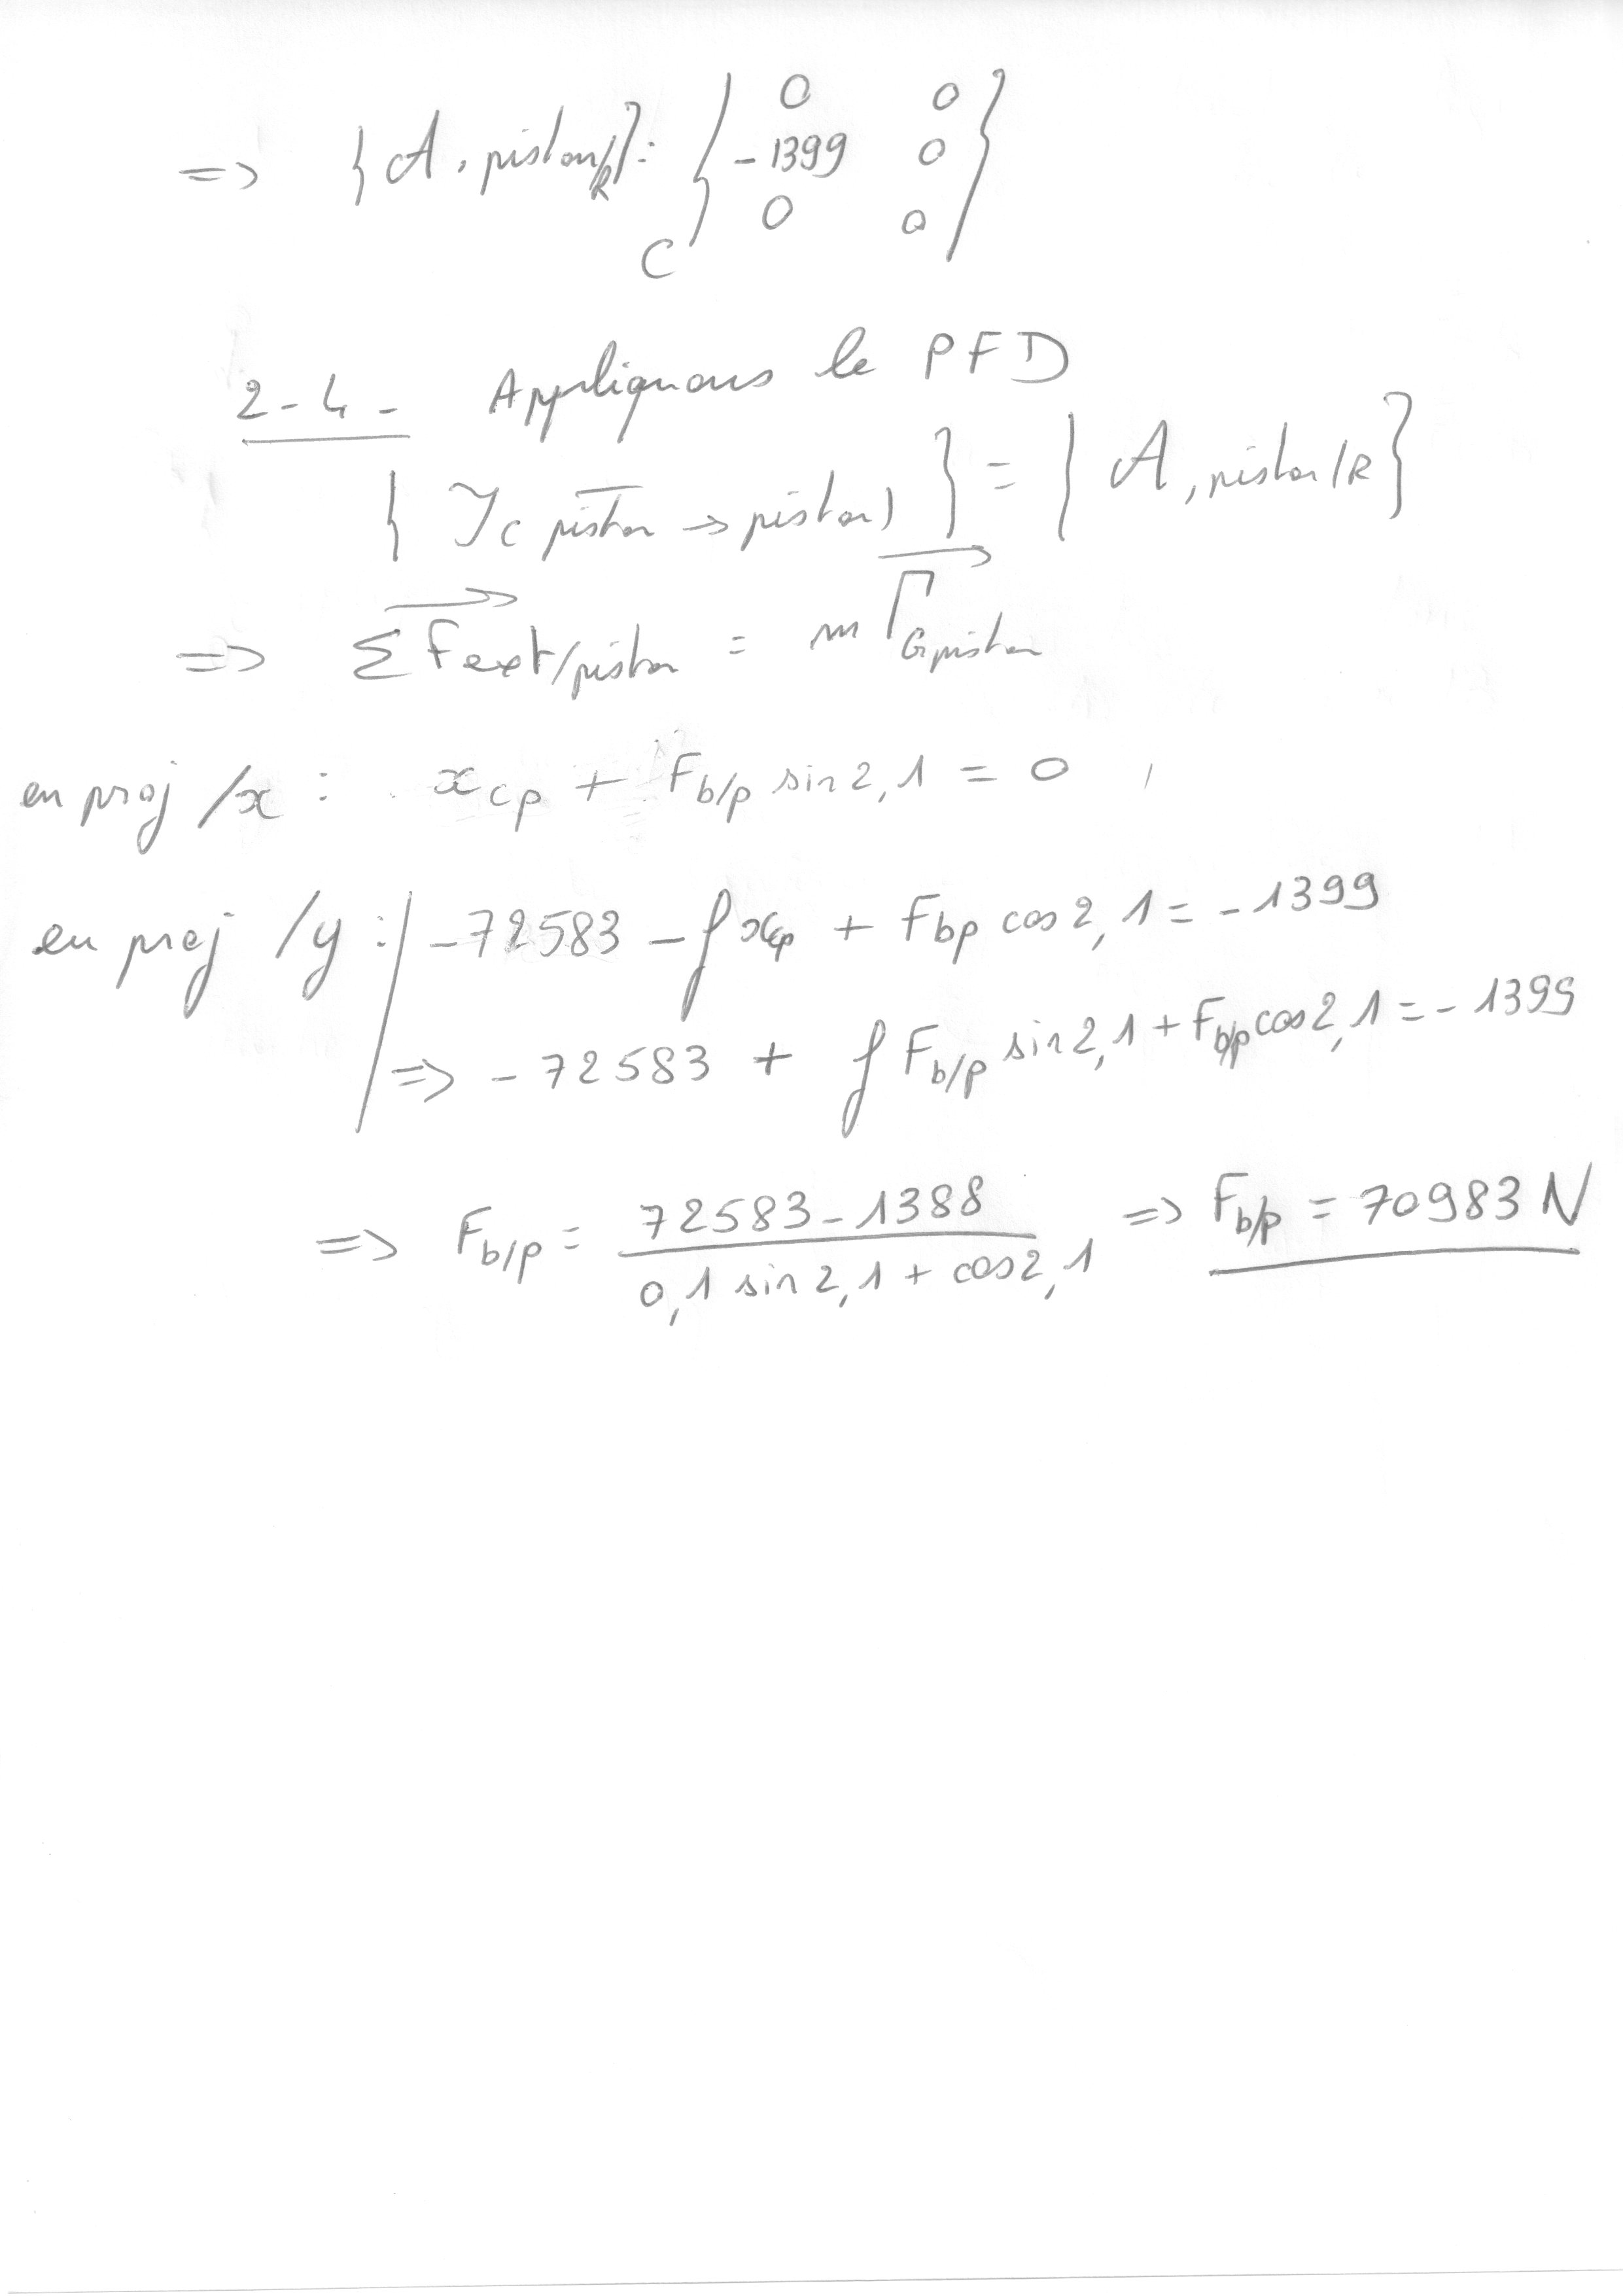 => {A, piston/R}: C { 0 0
-1399 0
0 0 }
2-4- Appliquons le PFD
{ Tc piston -> piston) } = { A, piston/R }
=> Σ Fext/piston = m Γ G piston
en proj /x : xcp + Fb/p sin 2,1 = 0
en proj /y : -72583 - f xcp + Fbp cos 2,1 = - 1399
=> - 72583 + f Fb/p sin 2,1 + Fb/p cos 2,1 = - 1399
=> Fb/p = 72583 - 1388 / 0,1 sin 2,1 + cos 2,1 => Fb/p = 70983 N